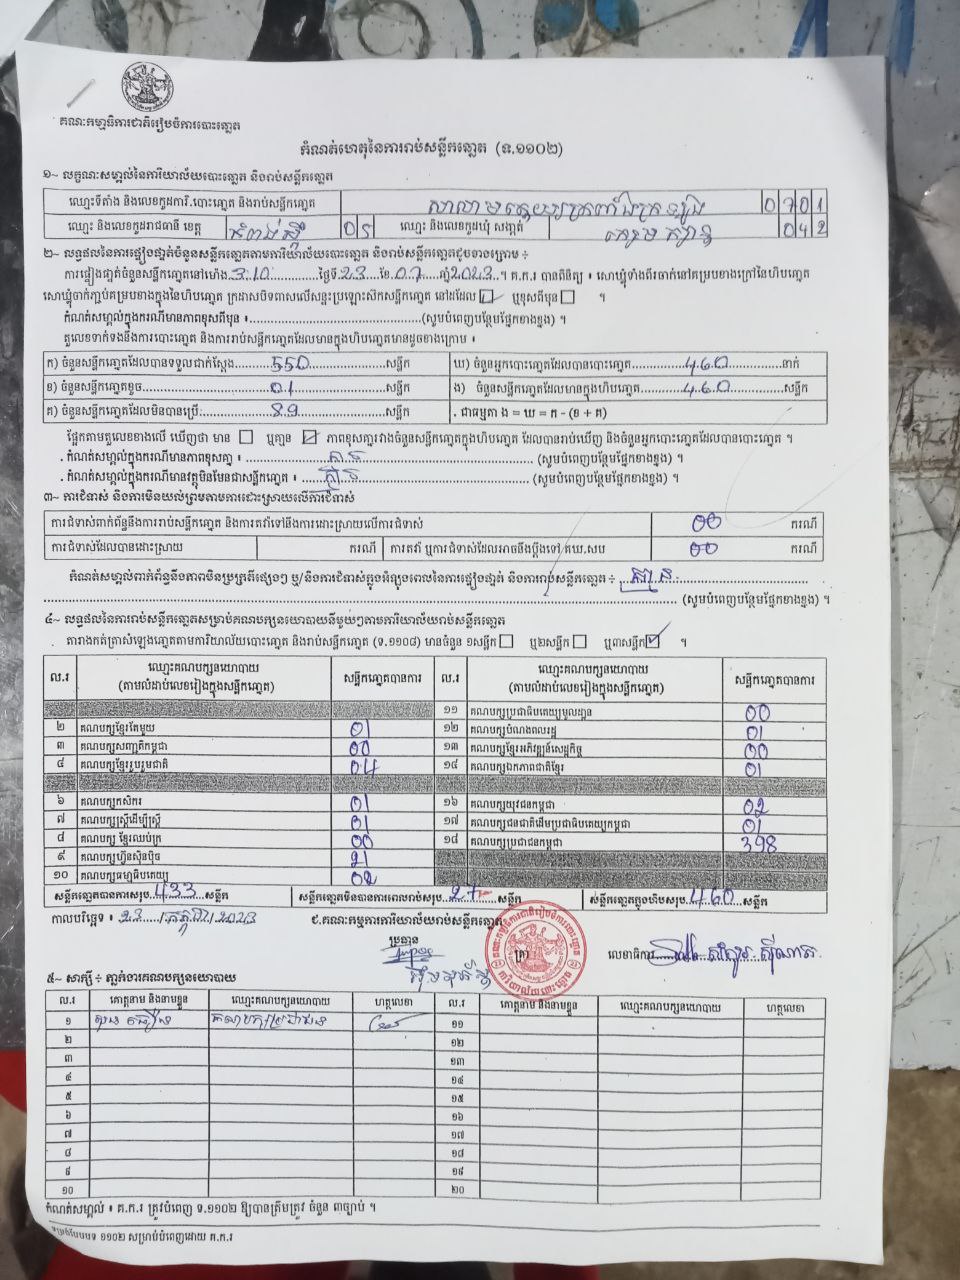 គណៈកម្មាធិការជាតិរៀបចំការបោះឆ្នោត
កំណត់ហេតុនៃការរាប់សន្លឹកឆ្នោត (ទ.១១០២)
១~ លក្ខណៈសម្គាល់នៃការិយាល័យបោះឆ្នោត និងរាប់សន្លឹកឆ្នោត
ឈ្មោះទីតាំង និងលេខកូដការិ.បោះឆ្នោត និងរាប់សន្លឹកឆ្នោត 0701
ឈ្មោះ និងលេខកូដរាជធានី ខេត្ត កំពង់ស្ពឺ 05 ឈ្មោះ និងលេខកូដឃុំ សង្កាត់ 042
២~ លទ្ធផលនៃការផ្ទៀងផ្ទាត់ចំនួនសន្លឹកឆ្នោតតាមការិយាល័យបោះឆ្នោត និងរាប់សន្លឹកឆ្នោតដូចខាងក្រោម ៖
ការផ្ទៀងផ្ទាត់ចំនួនសន្លឹកឆ្នោតនៅម៉ោង 3:10 ថ្ងៃទី 23 ខែ 07 ឆ្នាំ 2023 ។ គ.ក.រ បានពិនិត្យ ៖ សោឃ្លុំទាំងពីរចាក់នៅគម្របខាងក្រៅនៃហិបឆ្នោត
សោឃ្លុំចាក់ភ្ជាប់គម្របខាងក្នុងនៃហិបឆ្នោត ក្រដាសបិទពាសលើសន្ទះប្រឡោះស៊កសន្លឹកឆ្នោត នៅដដែល ឬខុសពីមុន ។
កំណត់សម្គាល់ក្នុងករណីមានភាពខុសពីមុន ៖ (សូមបំពេញបន្ថែមផ្នែកខាងខ្នង) ។
តួលេខទាក់ទងនឹងការបោះឆ្នោត និងការរាប់សន្លឹកឆ្នោតដែលមានក្នុងហិបឆ្នោតមានដូចខាងក្រោម ៖
ក) ចំនួនសន្លឹកឆ្នោតដែលបានទទួលជាក់ស្តែង 550 សន្លឹក ឃ) ចំនួនអ្នកបោះឆ្នោតដែលបានបោះឆ្នោត 460 នាក់
ខ) ចំនួនសន្លឹកឆ្នោតខូច 01 សន្លឹក ង) ចំនួនសន្លឹកឆ្នោតដែលមានក្នុងហិបឆ្នោត 460 សន្លឹក
គ) ចំនួនសន្លឹកឆ្នោតដែលមិនបានប្រើ 89 សន្លឹក . ជាធម្មតា ង = ឃ = ក - (ខ + គ)
ផ្អែកតាមតួលេខខាងលើ ឃើញថា មាន ឬគ្មាន ភាពខុសគ្នារវាងចំនួនសន្លឹកឆ្នោតក្នុងហិបឆ្នោត ដែលបានរាប់ឃើញ និងចំនួនអ្នកបោះឆ្នោតដែលបានបោះឆ្នោត ។
. កំណត់សម្គាល់ក្នុងករណីមានភាពខុសគ្នា ៖ គ្មាន (សូមបំពេញបន្ថែមផ្នែកខាងខ្នង) ។
. កំណត់សម្គាល់ក្នុងករណីមានវត្ថុមិនមែនជាសន្លឹកឆ្នោត ៖ គ្មាន (សូមបំពេញបន្ថែមផ្នែកខាងខ្នង) ។
៣~ ការជំទាស់ និងការមិនយល់ព្រមតាមការដោះស្រាយលើការជំទាស់
ការជំទាស់ពាក់ព័ន្ធនឹងការរាប់សន្លឹកឆ្នោត និងការតវ៉ាទៅនឹងការដោះស្រាយលើការជំទាស់ 00 ករណី
ការជំទាស់ដែលបានដោះស្រាយ ករណី ការតវ៉ា ឬការជំទាស់ដែលអាចនឹងប្តឹងទៅ គឃ.សប 00 ករណី
កំណត់សម្គាល់ពាក់ព័ន្ធនឹងភាពមិនប្រក្រតីផ្សេងៗ ឬ/និងការជំទាស់ក្នុងអំឡុងពេលនៃការផ្ទៀងផ្ទាត់ និងការរាប់សន្លឹកឆ្នោត ៖ គ្មាន
(សូមបំពេញបន្ថែមផ្នែកខាងខ្នង) ។
៤~ លទ្ធផលនៃការរាប់សន្លឹកឆ្នោតសម្រាប់គណបក្សនយោបាយនីមួយៗតាមការិយាល័យរាប់សន្លឹកឆ្នោត
តារាងកត់ត្រាសំឡេងឆ្នោតតាមការិយាល័យបោះឆ្នោត និងរាប់សន្លឹកឆ្នោត (ទ.១១០៨) មានចំនួន ១សន្លឹក ឬ២សន្លឹក ឬ៣សន្លឹក ។
ល.រ ឈ្មោះគណបក្សនយោបាយ (តាមលំដាប់លេខរៀងក្នុងសន្លឹកឆ្នោត) សន្លឹកឆ្នោតបានការ ល.រ ឈ្មោះគណបក្សនយោបាយ (តាមលំដាប់លេខរៀងក្នុងសន្លឹកឆ្នោត) សន្លឹកឆ្នោតបានការ
១១ គណបក្សប្រជាធិបតេយ្យមូលដ្ឋាន 00
២ គណបក្សខ្មែរតែមួយ 01 ១២ គណបក្សបំណងពលរដ្ឋ 01
៣ គណបក្សសញ្ជាតិកម្ពុជា 00 ១៣ គណបក្សខ្មែរអភិវឌ្ឍន៍សេដ្ឋកិច្ច 00
៤ គណបក្សខ្មែររួបរួមជាតិ 04 ១៤ គណបក្សឯកភាពជាតិខ្មែរ 01
៦ គណបក្សកសិករ 01 ១៦ គណបក្សយុវជនកម្ពុជា 02
៧ គណបក្សស្ត្រីដើម្បីស្ត្រី 01 ១៧ គណបក្សជនជាតិដើមប្រជាធិបតេយ្យកម្ពុជា 01
៨ គណបក្ស ខ្មែរឈប់ក្រ 00 ១៨ គណបក្សប្រជាជនកម្ពុជា 398
៩ គណបក្សហ្វ៊ុនស៊ិនប៉ិច 21
១០ គណបក្សធម្មាធិបតេយ្យ 02
សន្លឹកឆ្នោតបានការសរុប 433 សន្លឹក សន្លឹកឆ្នោតមិនបានការពេលរាប់សរុប 27 សន្លឹក សន្លឹកឆ្នោតក្នុងហិបសរុប 460 សន្លឹក
កាលបរិច្ឆេទ ៖ 23/កក្កដា/2023 ជ.គណៈកម្មការការិយាល័យរាប់សន្លឹកឆ្នោត
ប្រធាន ត្រា លេខាធិការ
៥~ សាក្សី - ភ្នាក់ងារគណបក្សនយោបាយ
ល.រ គោត្តនាម និងនាមខ្លួន ឈ្មោះគណបក្សនយោបាយ ហត្ថលេខា ល.រ គោត្តនាម និងនាមខ្លួន ឈ្មោះគណបក្សនយោបាយ ហត្ថលេខា
១ គណបក្សប្រជាជន ១១
២ ១២
៣ ១៣
៤ ១៤
៥ ១៥
៦ ១៦
៧ ១៧
៨ ១៨
៩ ១៩
១០ ២០
កំណត់សម្គាល់ ៖ គ.ក.រ ត្រូវបំពេញ ទ.១១០២ ឱ្យបានត្រឹមត្រូវ ចំនួន ៣ច្បាប់ ។
ទម្រង់បែបបទ ១១០២ សម្រាប់បំពេញដោយ គ.ក.រ